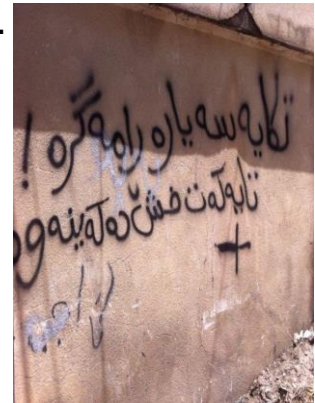 تکایە سەیارە رامەگرە !
تایەکەت فش دەکەینەوە
+